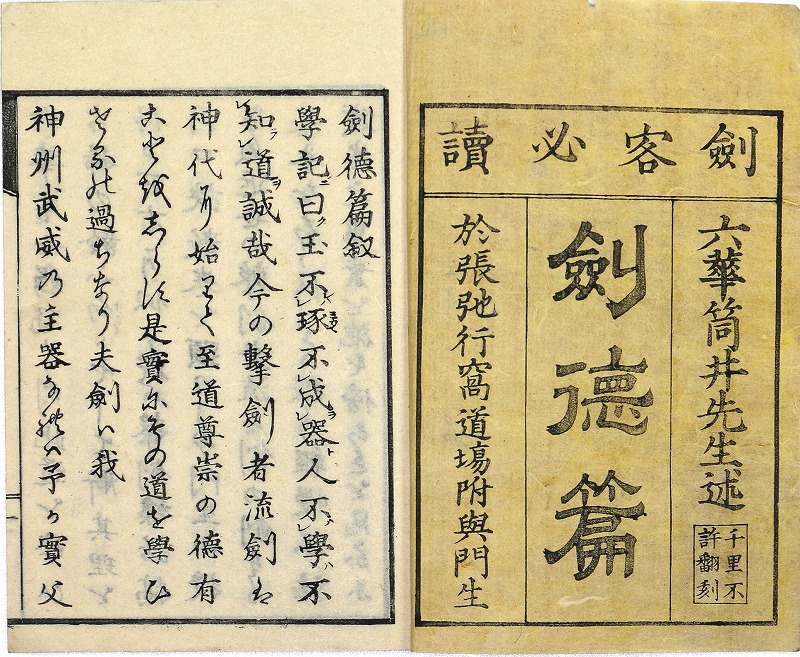 劍客必讀
六華筒井先生述
千里不
許翻刻
劍德篇
於張弛行窩道塲附與門生
劍德篇叙
學記曰玉不琢不成器人不學不
知道誠哉今の擊劍者流劍は
神代ゟ始りて至道尊崇の德有
ことをしらす是實にその道を學ひ
さるの過ちなり夫劍ハ我
神州武威乃主器なれハ予か實父